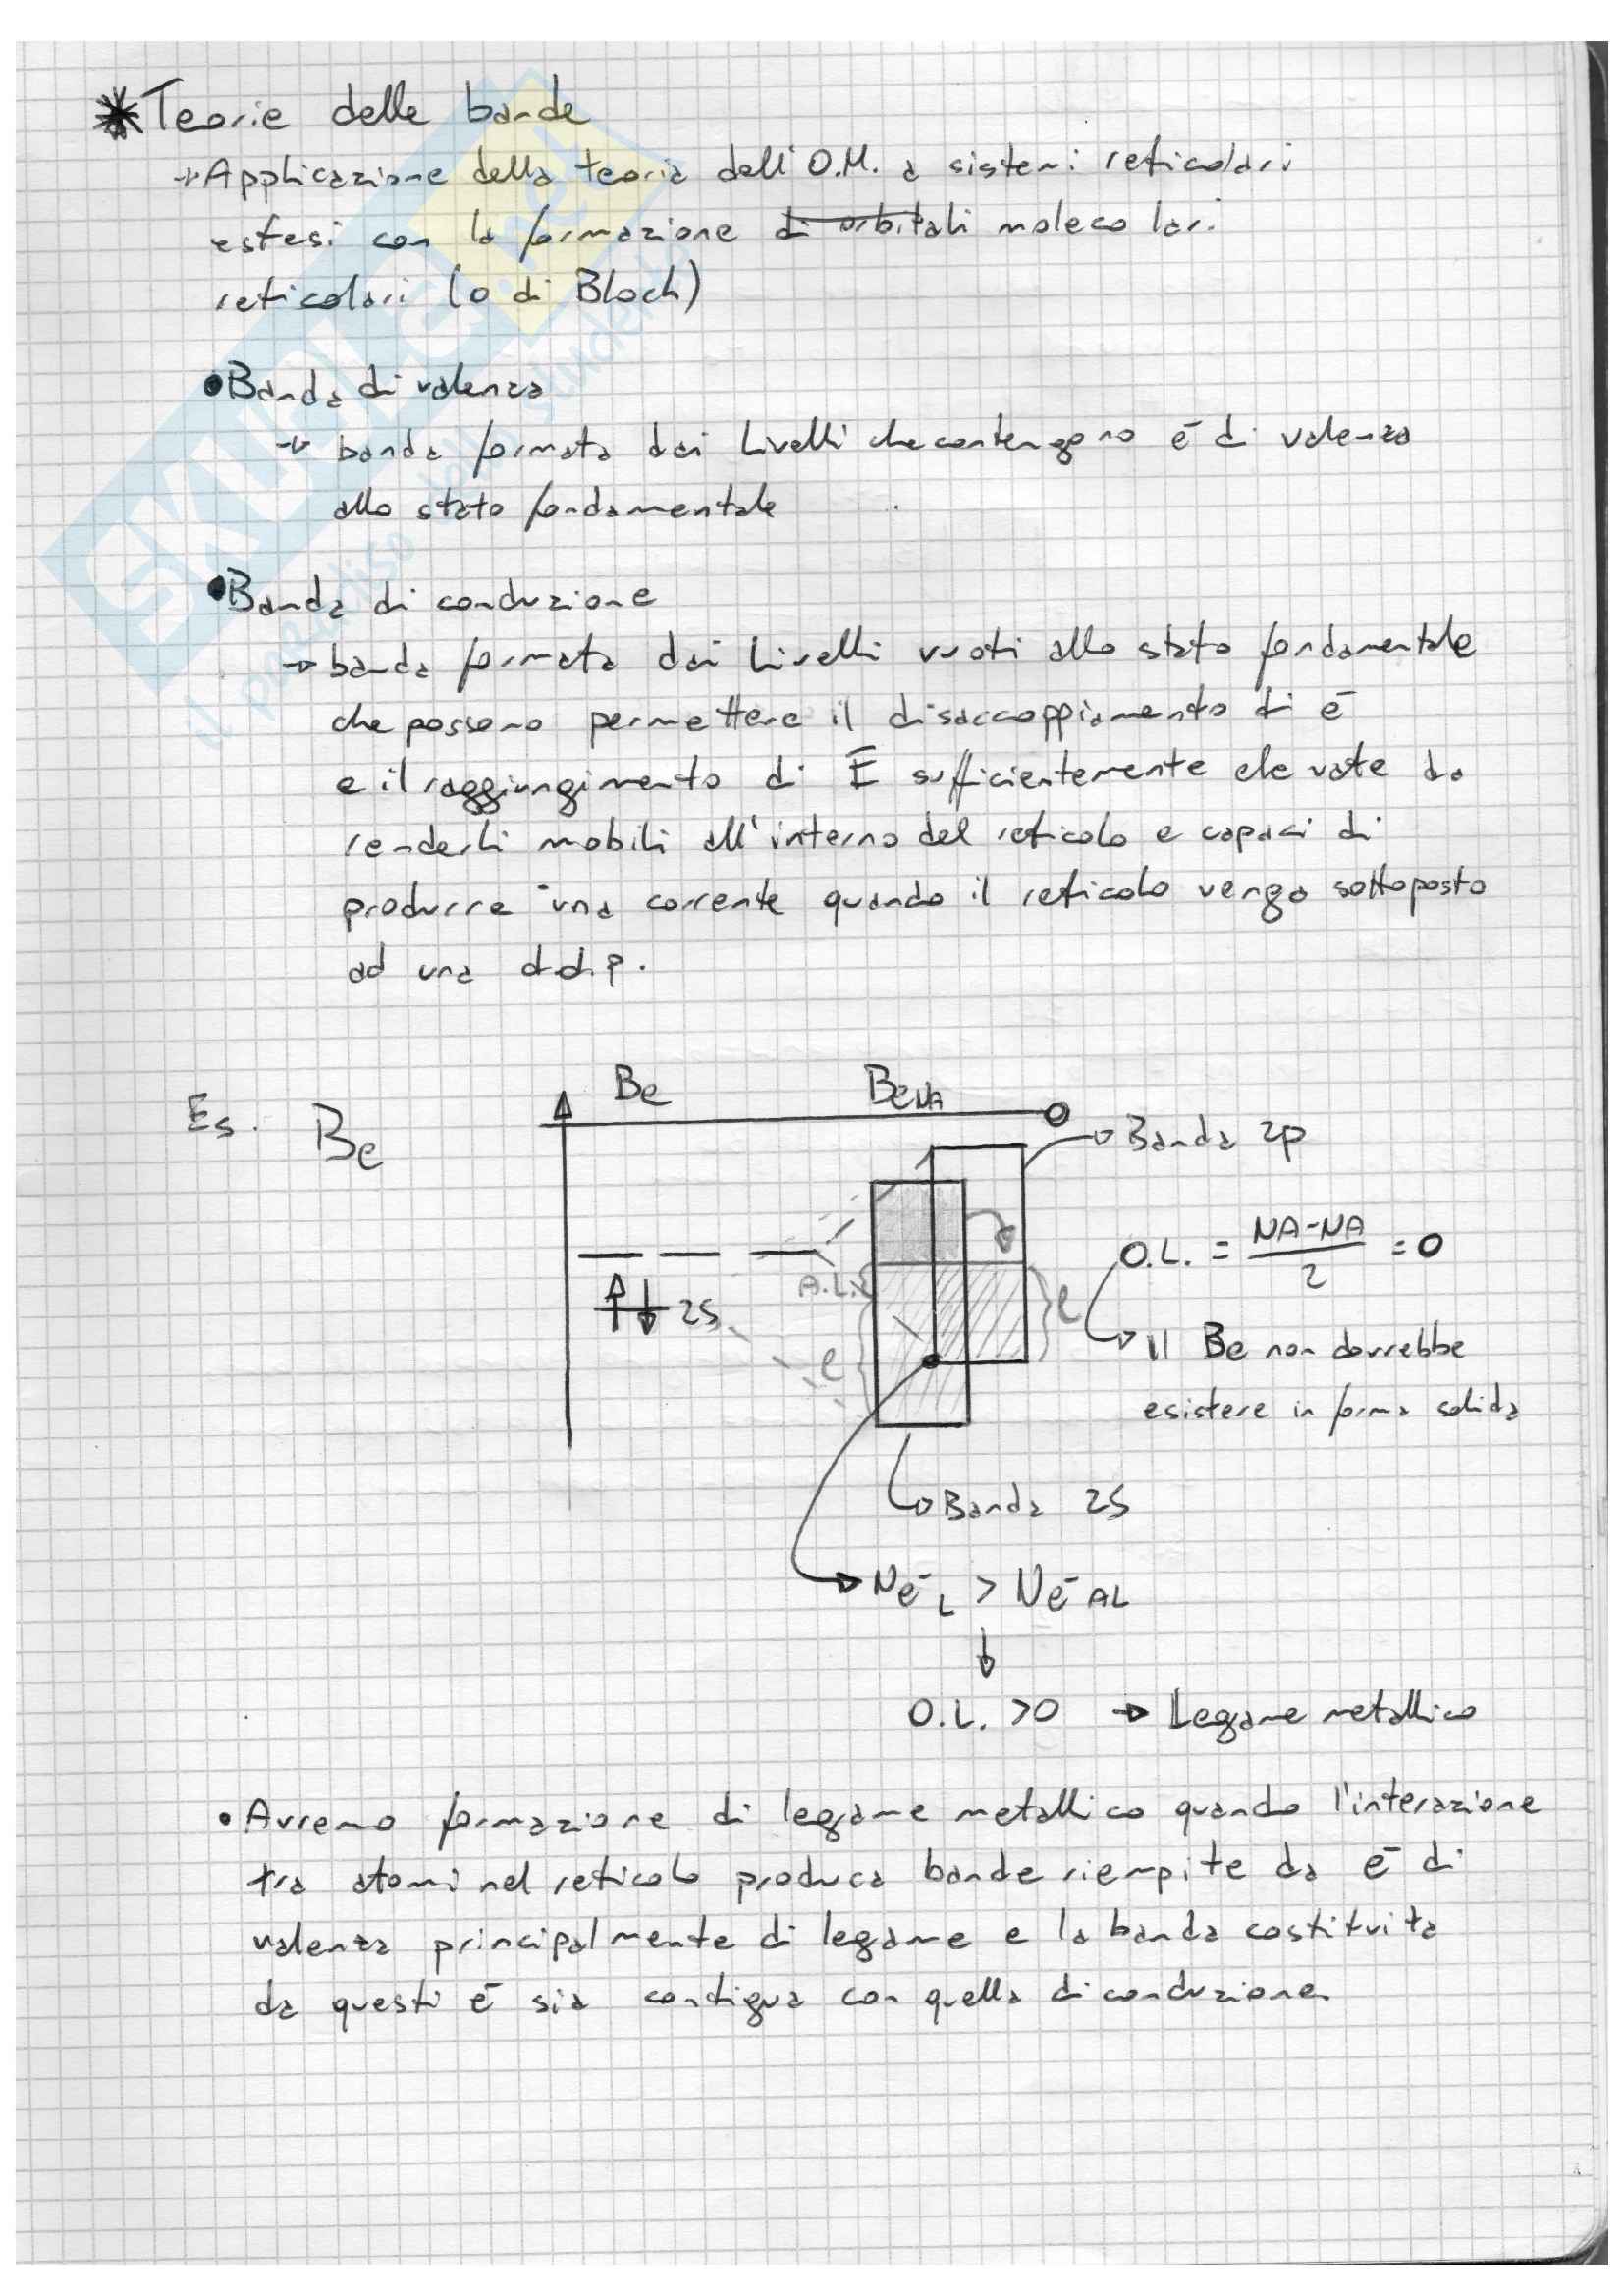 Teorie delle bande
→ Applicazione della teoria dell'O.M. a sistemi reticolari
estesi con la formazione di orbitali molecolari
reticolari (o di Bloch)
• Banda di valenza
→ banda formata dai livelli che contengono e⁻ di valenza
allo stato fondamentale
• Banda di conduzione
→ banda formata dai livelli vuoti allo stato fondamentale
che possono permettere il disaccoppiamento di e⁻
e il raggiungimento di E sufficientemente elevate da
renderli mobili all'interno del reticolo e capaci di
produrre una corrente quando il reticolo venga sottoposto
ad una d.d.p.
Es. Be
Be
Be NA
→ Banda 2p
O.L. = NA-NA / 2 = 0
A.L.
2s
e
l
→ Il Be non dovrebbe
esistere in forma solida
→ Banda 2s
→ Ne⁻ L > Ne⁻ AL
↓
O.L. >0 → Legame metallico
• Avremo formazione di legame metallico quando l'interazione
tra atomi nel reticolo produca bande riempite da e⁻ di
valenza principalmente di legame e la banda costituita
da questi e⁻ sia contigua con quella di conduzione.
SKUOLA
il paradiso dello studente